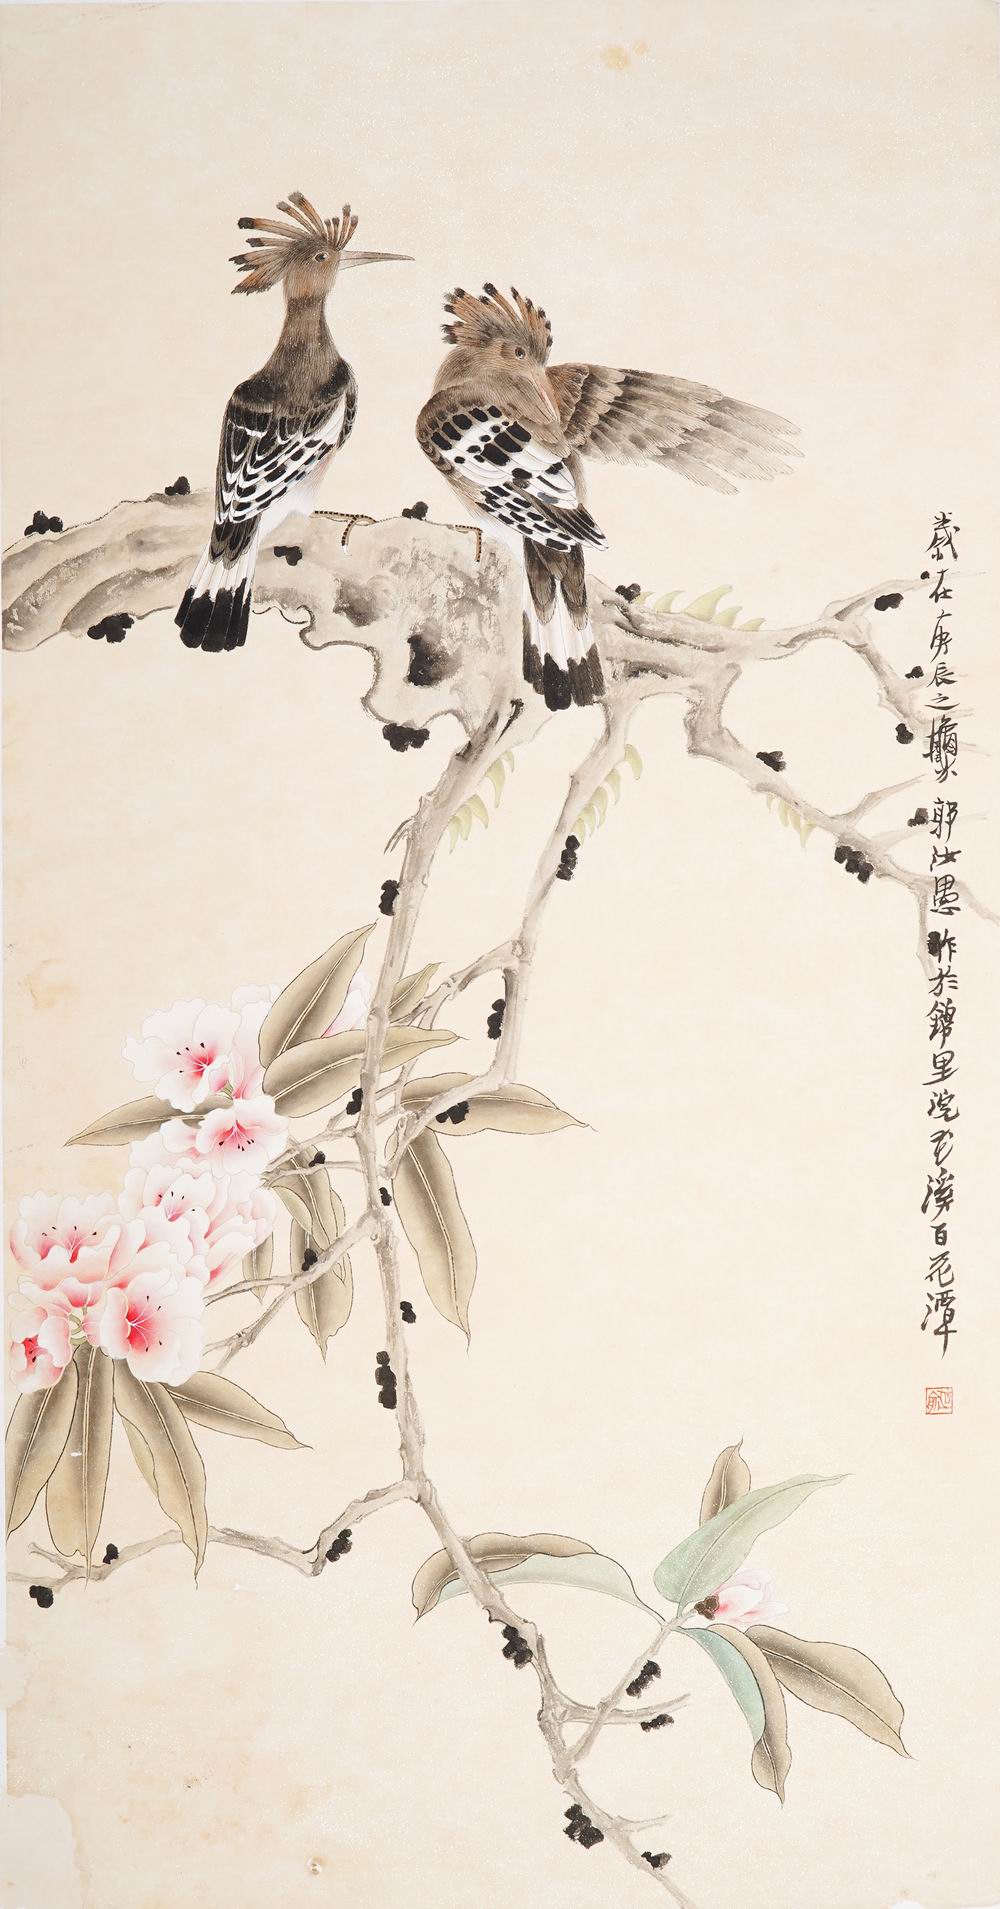 歲在庚辰之 郭汝愚 昨於錦里浣花溪百花潭